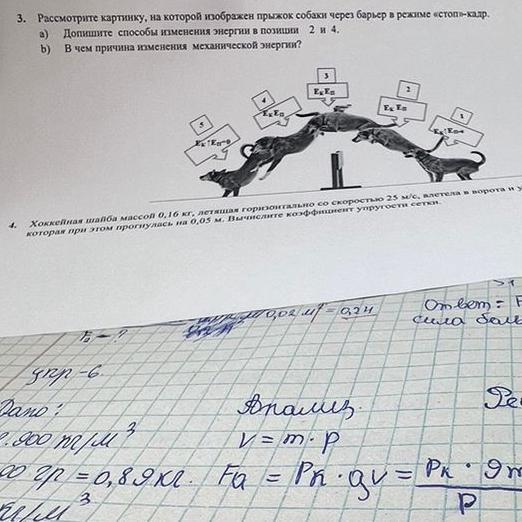 3. Рассмотрите картинку, на которой изображен прыжок собаки через барьер в режиме «стоп»-кадр.
a) Допишите способы изменения энергии в позиции 2 и 4.
b) В чем причина изменения механической энергии?
3
4
2
5
1
Eк Eп
Eк Eп
Eк Eп
Eк↑Eп=0
Eк↑Eп=
4. Хоккейная шайба массой 0,16 кг, летящая горизонтально со скоростью 25 м/с, влетела в ворота и
которая при этом прогнулась на 0,05 м. Вычислите коэффициент упругости сетки.
0,02 м³ = 0,24
Ответ =
сила
Fa - ?
упр-6.
Дано:
Анализ
900 кг/м³
v = m · p
00 гр = 0,89кг.
Fa = Pк · gv = Pк · gm
P
кг/м³